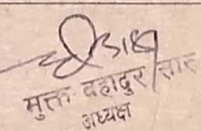 मुक्त बहादुर सारु
अध्यक्ष